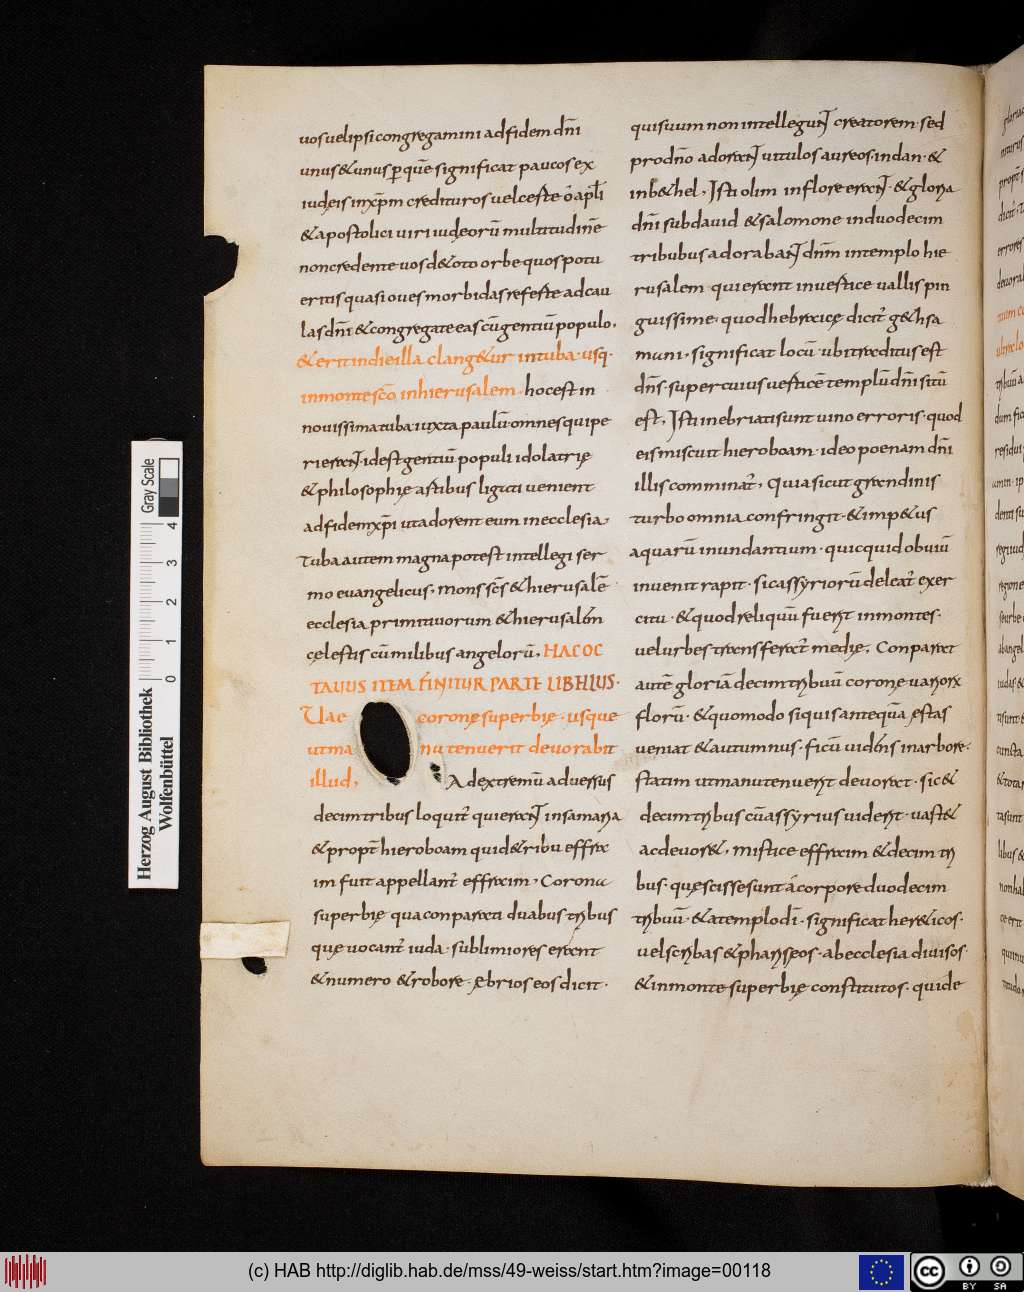 uos uel ipsi congregamini ad fidem dñi
unus & unus ꝑ quẽ significat paucos ex
iudęis in xp̃m credituros uel ceste ò apłi
& apostolici uiri iudęorũ multitudinẽ
non credente uos d& oto orbe quos potu
eritis quasi oues morbidas refeste ad cau
las dñi & congregate eas cũ gentiũ populo.
& erit in die illa clang&ur in tuba · usq·
in monte sc̃o in hierusalem · hoc est in
nouissima tuba iuxta paulũ · omnes qui pe
rierant · id est gentiũ populi idolatrię
& philosophię astibus ligati uenient
ad fidem xp̃i ut adorent eum in ecclesia,
Tuba autem magna potest intellegi ser
mo euangelicus · mons sc̃s & hierusalẽ
ecclesia primitiuorum & hierusalẽm
cęlestis cũ milibus angelorũ. HAC OC
TAUUS ITEM FINITUR PARTE LIBELLUS·
Uae coronę superbię · usque
ut ma nu tenuerit deuorabit
illud, Ad extremũ aduersus
decim tribus loquit᷑ qui erant in samaria
& propt̃ hieroboam quid & ribu effra
im fuit appellant᷑ effraim, Corona
superbię qua conparati duabus tribus
quę uocant᷑ iuda · sublimiores erant
& numero & robore · ębrios eos dicit·
qui suum non intellegunt creatorem · sed
pro dño adorant uitulos aureos · in dan · &
in b&hel, Isti olim in flore erant · & gloria
dñi sub dauid & salomone in duodecim
tribubus adorabant dñm in templo hie
rusalem qui erant in uestice uallis pin
guissime, quod hebraicę dicit᷑ g&hsa
muni, significat locũ ubi traditus est
dñs · super cuius uesticẽ templũ dñi sitũ
est, Isti inebriati sunt uino erroris · quod
eis miscuit hieroboam · ideo poenam dñi
illis comminat᷑, Quia sicut grandinis
turbo omnia confringit · & imp&us
aquarũ inundantium · quicquid obuiũ
inuenit rapit · sic assyriorũ deleat᷑ exer
citu · & quod reliquũ fuerit in montes·
uel urbes transferat᷑ medię, Conparat
autẽ gloriã decim tribuũ coronę uariorx
florũ · & quomodo si quis ante quã ęstas
ueniat & autumnus · ficũ uidẽns in arbore·
statim ut manu tenuerit deuorat · sic &
decim tribus cũ assyrius uiderit · uast&
ac deuor&, mistice effraim & decim tri
bus · quę scisse sunt á corpore duodecim
tribuũ · & a templo dĩ · significat her&icos·
uel scribas & phariseos · ab ecclesia diuisos·
& in monte superbię constitutos · qui de
Herzog August Bibliothek
Wolfenbüttel
Gray Scale
0 1 2 3 4
(c) HAB http://diglib.hab.de/mss/49-weiss/start.htm?image=00118
cc BY SA